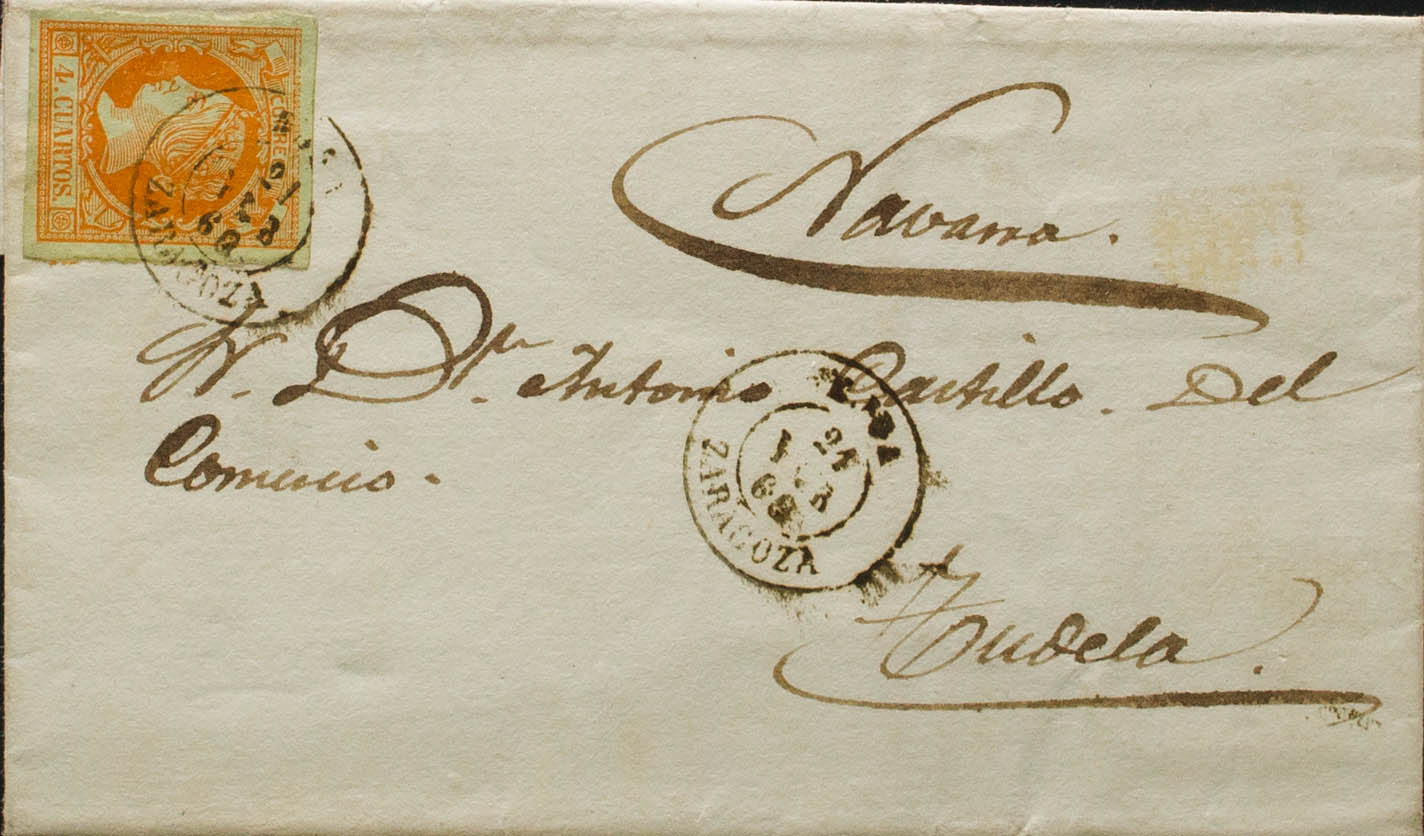 4. CUARTOS.
CORREOS
ZARAGOZA
Navarra.
Sr. Dn. Antonio Castillo. Del
Comercio.
24
60
ZARAGOZA
Tudela.